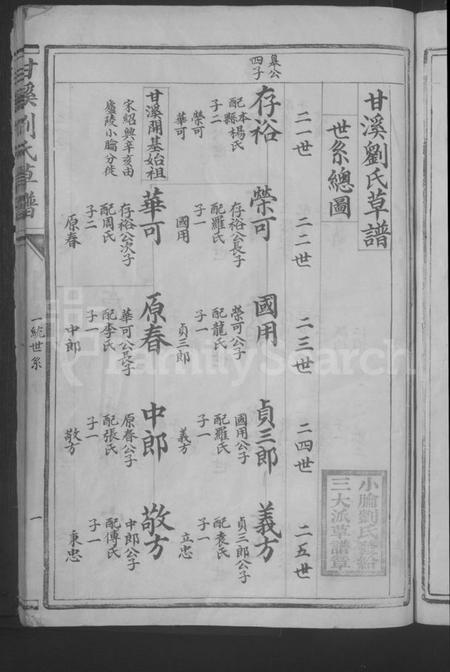 甘溪劉氏草譜
世系總圖
二一世
二二世
二三世
二四世
二五世
皐公
四子
存裕
配本
縣楊氏
子二
榮可
華可
榮可
存裕公長子
配羅氏
子一
國用
國用
榮可公子
配龍氏
子一
貞三郎
貞三郎
國用公子
配羅氏
子一
義方
義方
貞三郎公子
配袁氏
子一
立忠
甘溪開基始祖
宋紹興辛亥由
廬陵小腧分徙
華可
存裕公次子
配周氏
子二
原春
原春
華可公長子
配李氏
子一
中郎
中郎
原春公子
配張氏
子一
敬方
敬方
中郎公子
配傅氏
子一
秉忠
小腧劉氏
三大派草譜章
甘溪劉氏草譜
一統世系
一
FamilySearch